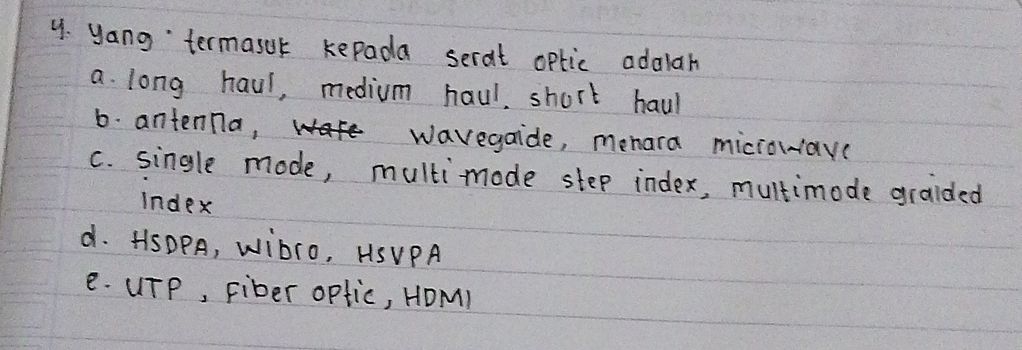 4. yang termasuk kepada serat optic adalah
a. long haul, medium haul, short haul
b. antenna, wafe wavegaide, menara microwave
c. single mode, multi mode step index, multimode graided
index
d. HSDPA, wibro, HSVPA
e. UTP, Fiber optic, HDMI